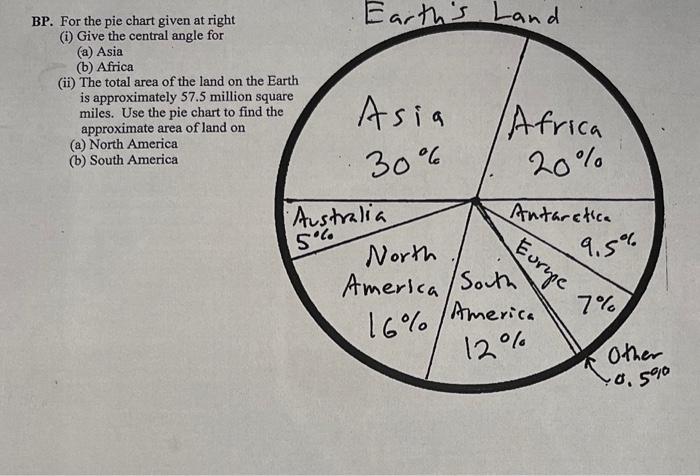 BP. For the pie chart given at right
(i) Give the central angle for
(a) Asia
(b) Africa
(ii) The total area of the land on the Earth
is approximately 57.5 million square
miles. Use the pie chart to find the
approximate area of land on
(a) North America
(b) South America
Earth's Land
Asia
30%
Africa
20%
Australia
5%
Antarctica
9.5%
North
America
16%
South
America
12%
Europe
7%
Other
0.5%